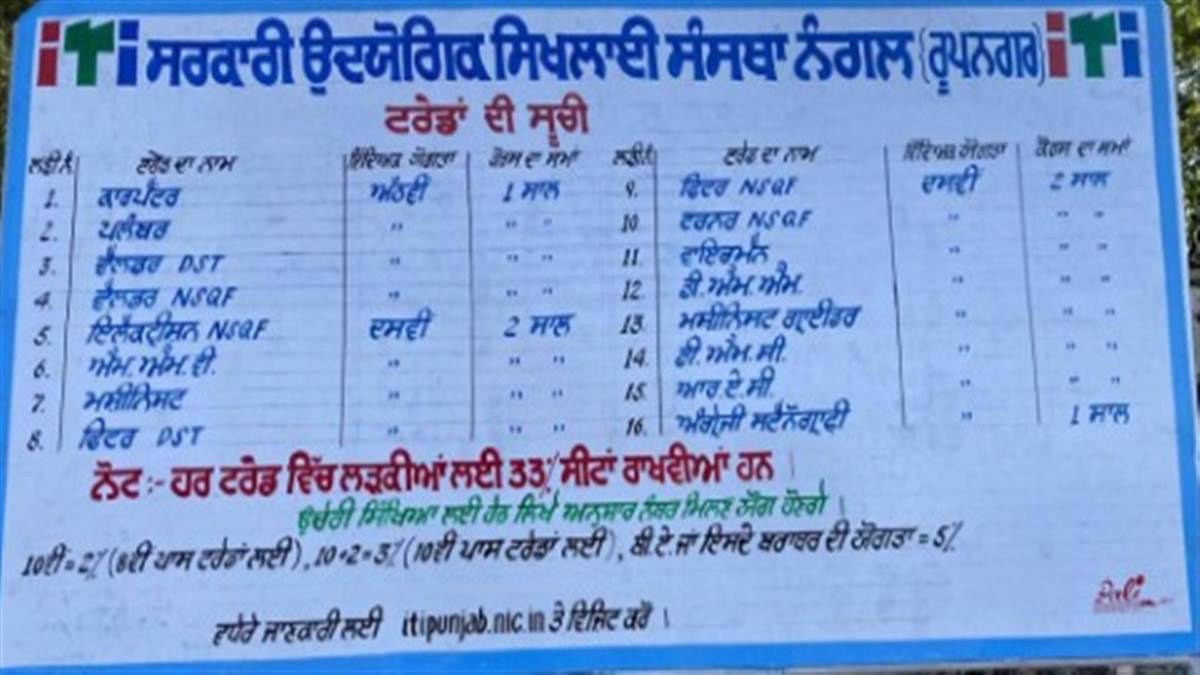 iti ਸਰਕਾਰੀ ਉਦਯੋਗਿਕ ਸਿਖਲਾਈ ਸੰਸਥਾ ਨੰਗਲ (ਰੂਪਨਗਰ) iti
ਟਰੇਡਾਂ ਦੀ ਸੂਚੀ
ਲੜੀ ਨੰ. ਟਰੇਡ ਦਾ ਨਾਮ ਵਿੱਦਿਅਕ ਯੋਗਤਾ ਕੋਰਸ ਦਾ ਸਮਾਂ ਲੜੀ ਨੰ. ਟਰੇਡ ਦਾ ਨਾਮ ਵਿੱਦਿਅਕ ਯੋਗਤਾ ਕੋਰਸ ਦਾ ਸਮਾਂ
1. ਕਾਰਪੈਂਟਰ ਅੱਠਵੀਂ 1 ਸਾਲ 9. ਫਿਟਰ NSQF ਦਸਵੀਂ 2 ਸਾਲ
2. ਪਲੰਬਰ " " " 10. ਟਰਨਰ NSQF " " "
3. ਵੈਲਡਰ DST " " " 11. ਵਾਇਰਮੈਨ " " "
4. ਵੈਲਡਰ NSQF " " " 12. ਡੀ.ਐਮ.ਐਮ. " " "
5. ਇਲੈਕਟ੍ਰੀਸ਼ਨ NSQF ਦਸਵੀਂ 2 ਸਾਲ 13. ਮਸ਼ੀਨਿਸਟ ਗ੍ਰਾਈਂਡਰ " " "
6. ਐਮ.ਐਮ.ਵੀ. " " " 14. ਡੀ.ਐਮ.ਸੀ. " " "
7. ਮਸ਼ੀਨਿਸਟ " " " 15. ਆਰ.ਏ.ਸੀ. " " "
8. ਫਿਟਰ DST " " " 16. ਅੰਗ੍ਰੇਜੀ ਸਟੈਨੋਗ੍ਰਾਫੀ " 1 ਸਾਲ
ਨੋਟ :- ਹਰ ਟਰੇਡ ਵਿੱਚ ਲੜਕੀਆਂ ਲਈ 33% ਸੀਟਾਂ ਰਾਖਵੀਆਂ ਹਨ ।
ਉਚੇਰੀ ਸਿੱਖਿਆ ਲਈ ਹੇਠ ਲਿਖੇ ਅਨੁਸਾਰ ਨੰਬਰ ਮਿਲਣ ਯੋਗ ਹੋਣਗੇ ।
10ਵੀਂ = 2% (8ਵੀਂ ਪਾਸ ਟਰੇਡਾਂ ਲਈ), 10+2 = 3% (10ਵੀਂ ਪਾਸ ਟਰੇਡਾਂ ਲਈ), ਬੀ.ਏ. ਜਾਂ ਇਸਦੇ ਬਰਾਬਰ ਦੀ ਯੋਗਤਾ = 5%
ਵਧੇਰੇ ਜਾਣਕਾਰੀ ਲਈ itipunjab.nic.in ਤੇ ਵਿਜ਼ਿਟ ਕਰੋ ।